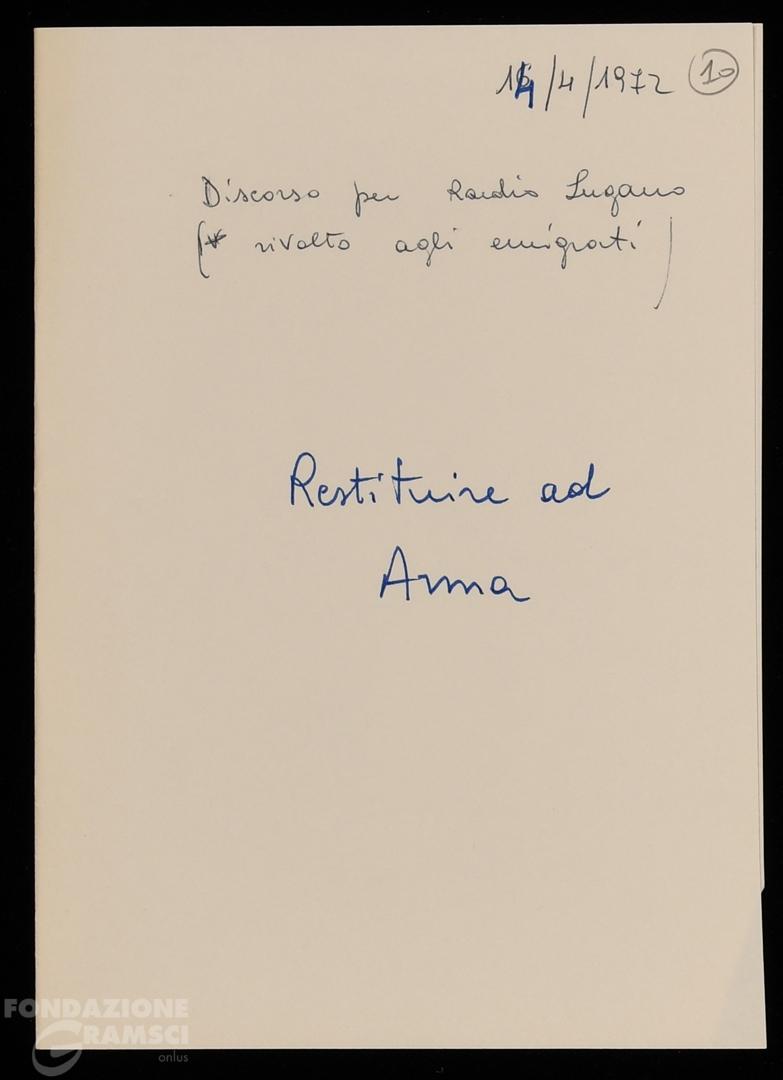 14/4/1972 10
Discorso per Radio Lugano
( rivolto agli emigrati )
Restituire ad
Anna
FONDAZIONE
GRAMSCI
onlus